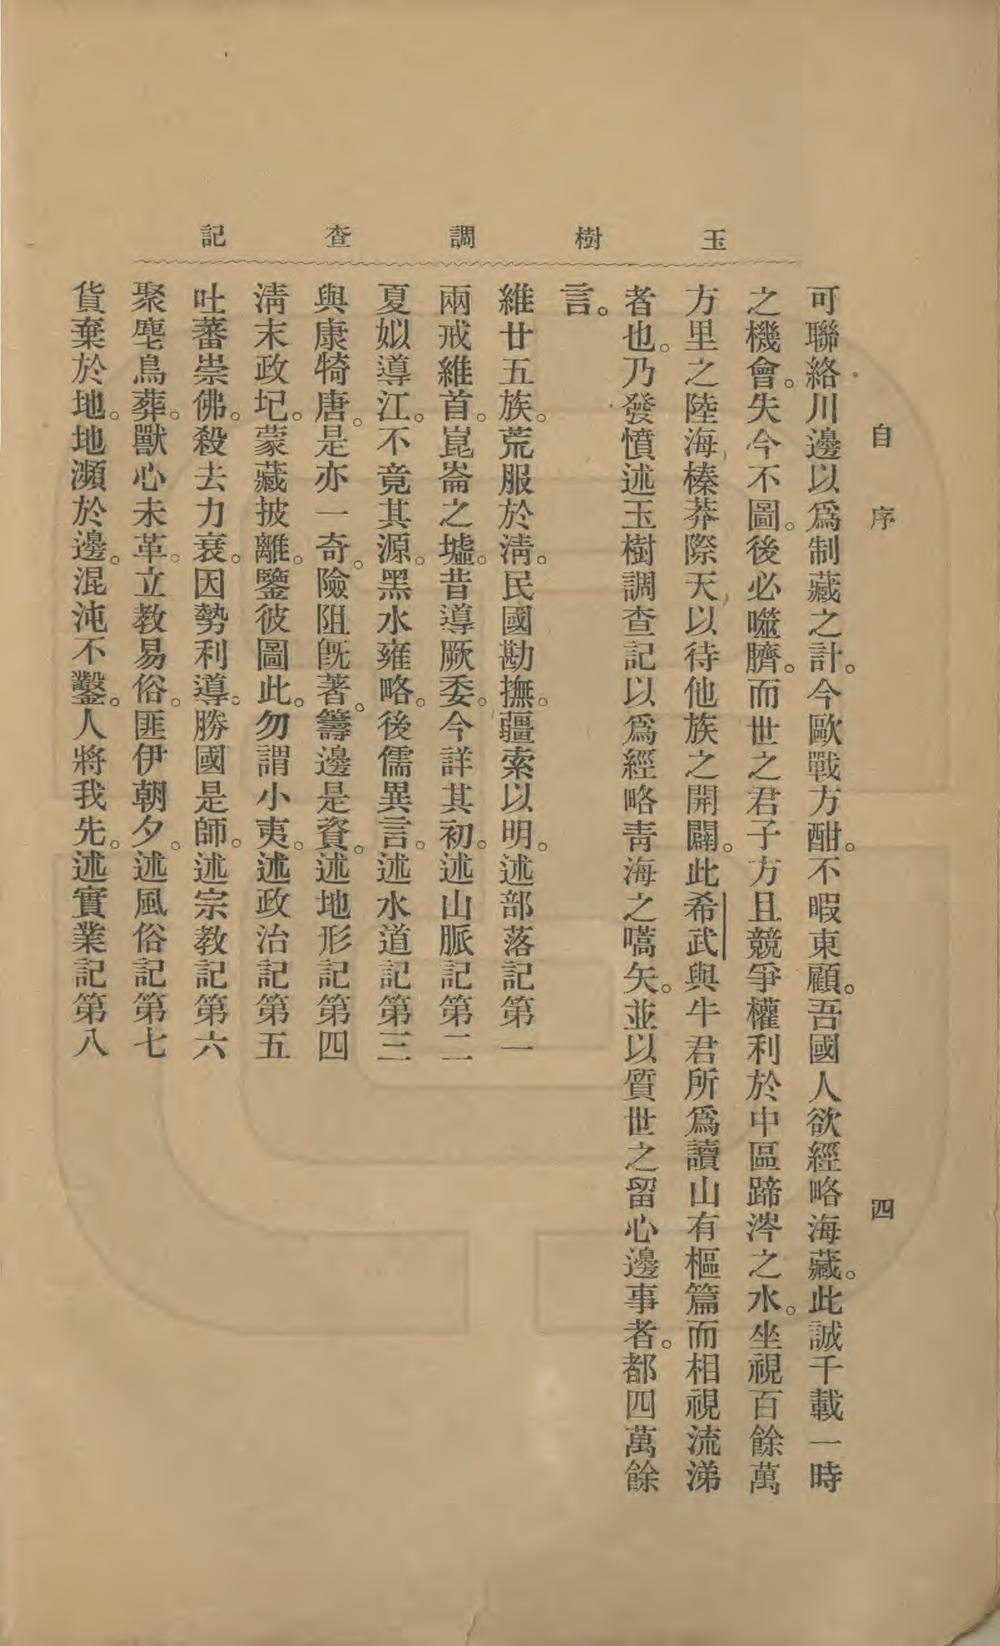 玉樹調查記
自序
四
可聯絡川邊以爲制藏之計。今歐戰方酣。不暇東顧。吾國人欲經略海藏。此誠千載一時
之機會。失今不圖。後必噬臍。而世之君子方且競爭權利於中區蹄涔之水。坐視百餘萬
方里之陸海榛莽際天以待他族之開闢。此希武與牛君所爲讀山有樞篇而相視流涕
者也。乃發憤述玉樹調查記以爲經略青海之嚆矢。並以質世之留心邊事者。都四萬餘
言。
維廿五族。荒服於淸。民國勘撫。疆索以明。述部落記第一
兩戒維首。崑崙之墟。昔導厥委。今詳其初。述山脈記第二
夏姒導江。不竟其源。黑水雍略。後儒異言。述水道記第三
與康犄唐。是亦一奇。險阻旣著。籌邊是資。述地形記第四
淸末政圮。蒙藏披離。鑒彼圖此。勿謂小夷。述政治記第五
吐蕃崇佛。殺去力衰。因勢利導。勝國是師。述宗教記第六
聚麀鳥葬。獸心未革。立教易俗。匪伊朝夕。述風俗記第七
貨棄於地。地瀕於邊。混沌不鑿。人將我先。述實業記第八